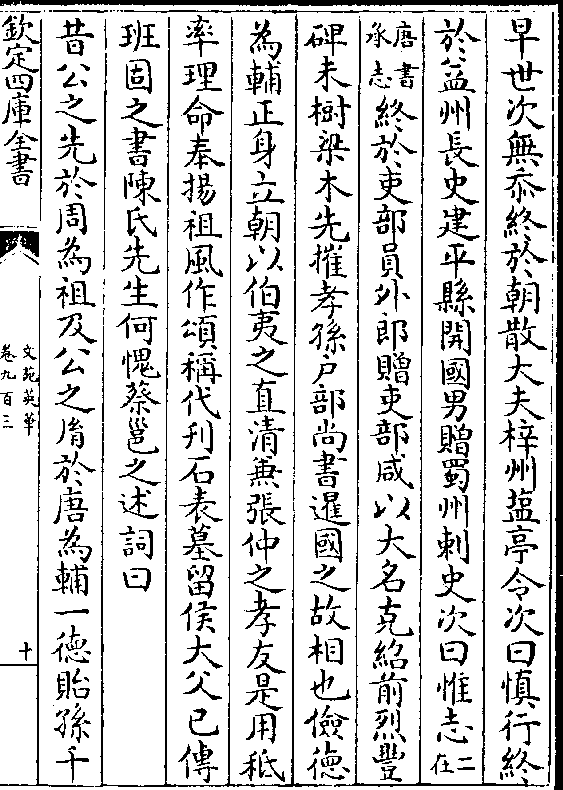 早世次無忝終於朝散大夫梓州鹽亭令次曰慎行終
於益州長史建平縣開國男贈蜀州刺史次曰惟志二在
唐書承志終於吏部員外郎贈吏部咸以大名克紹前烈豐
碑未樹梁木先摧孝孫戶部尚書暹國之故相也儉德
為輔正身立朝以伯夷之直清兼張仲之孝友是用秪
率理命奉揚祖風作頌稱代刋石表墓留侯大父已傳
班固之書陳氏先生何愧蔡邕之述詞曰
昔公之先於周為祖及公之胤於唐為輔一德貽孫千
欽定四庫全書
文苑英華
卷九百三
十